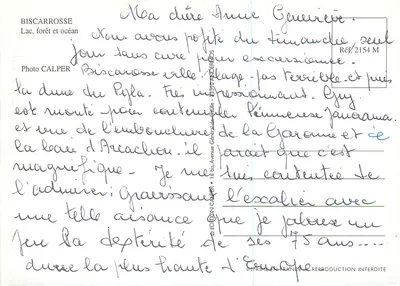 BISCARROSSE
Lac, forêt et océan
Réf. 2154 M
Photo CALPER
Ma chère Anne Geneviève.
Nous avons profité du dimanche, seul
jour sans cure pour excursionner.
Biscarosse ville plage pas terrible et puis
la dune du Pyla. Très impressionnant. Guy
est monté pour contempler l'immense panorama
et vue de l'embouchure de la Garonne et de
la baie d'Arcachon. il paraît que c'est
magnifique. Je me suis contentée de
l'admirer gravissant l'escalier avec
une telle aisance que je jalouse un
peu la dextérité de ses 75 ans....
dune la plus haute d'Europe.
REPRODUCTION INTERDITE